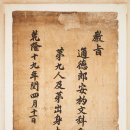 敎旨
通德郎安杓文科
第九人及第出身
乾隆十九年閏四月十